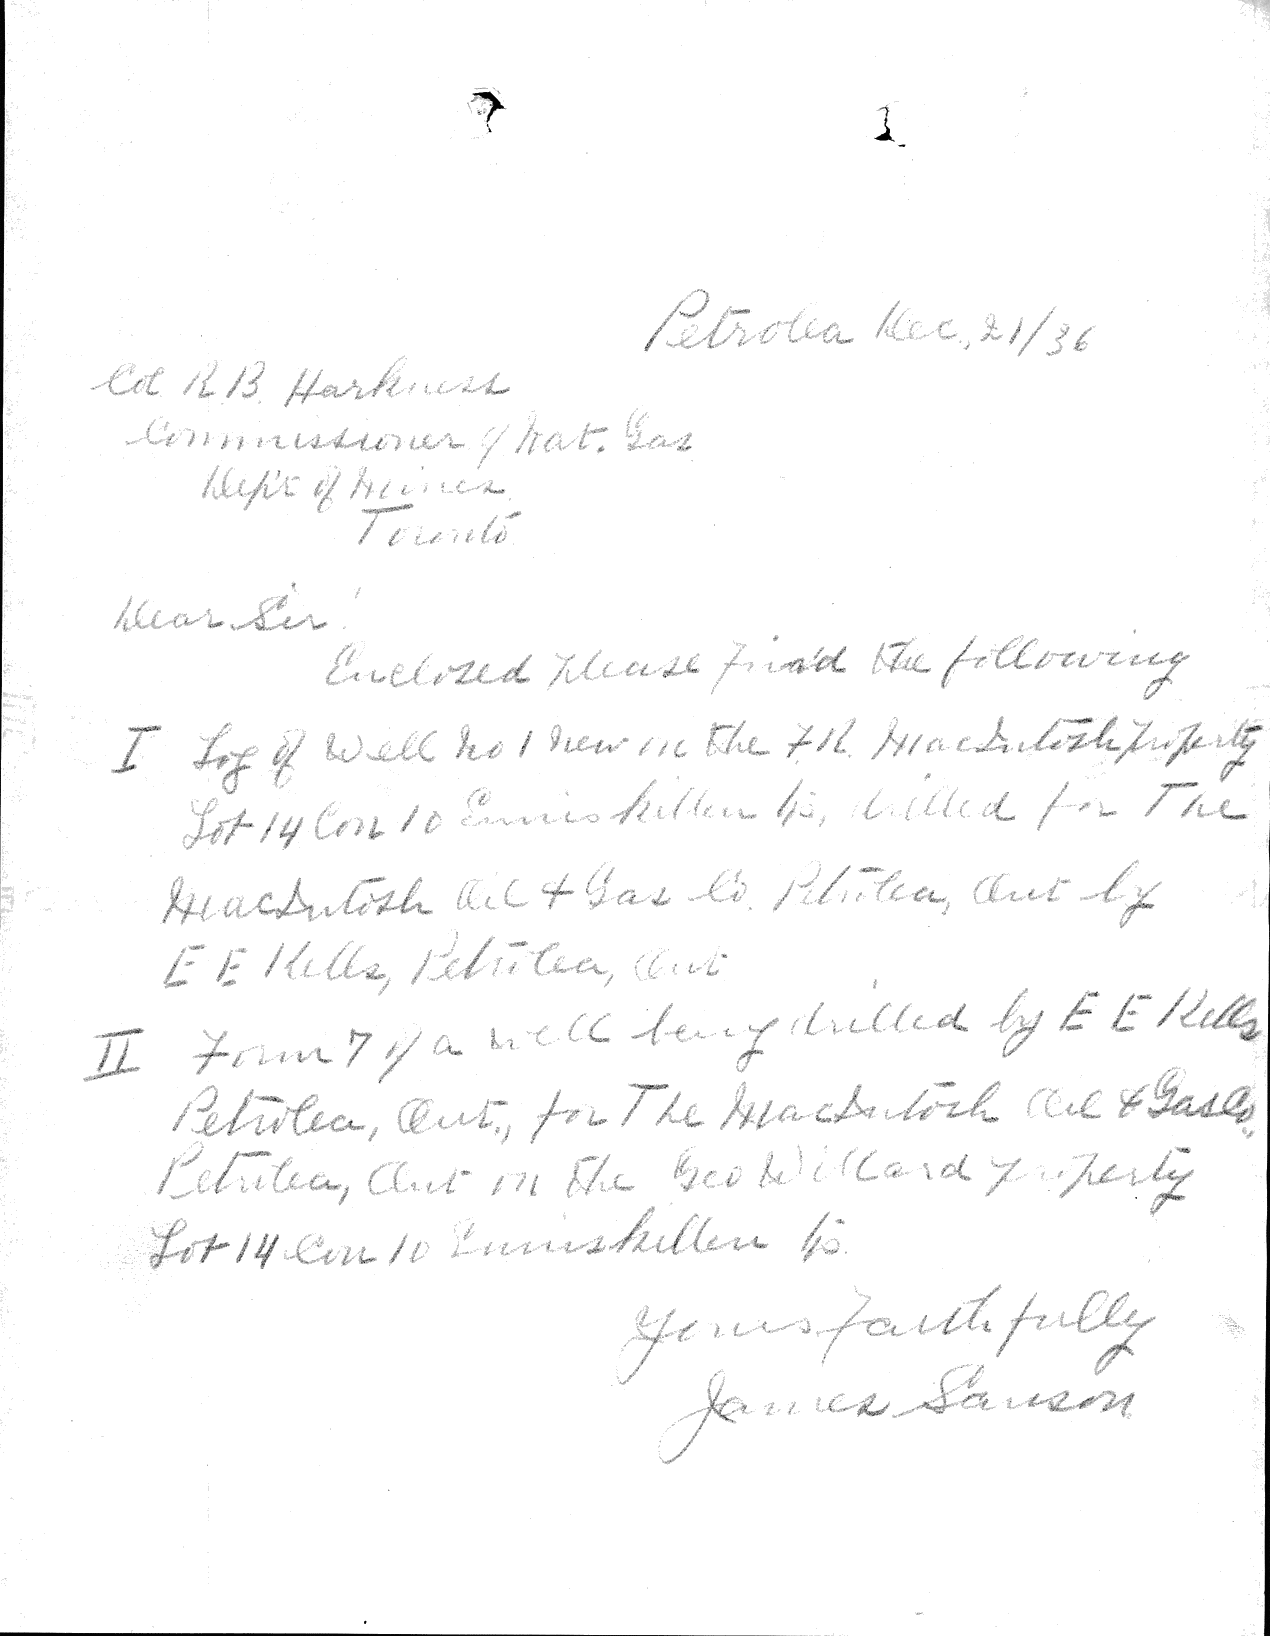 Petrolea Dec., 21/36
Col. R. B. Harkness
Commissioner of Nat. Gas
Dep't of Mines
Toronto
Dear Sir!
Enclosed please find the following
I Log of Well No 1 New on the F. R. MacIntosh property
Lot 14 Con 10 Enniskillen Tp, drilled for The
MacIntosh Oil & Gas Co. Petrolea, Ont by
E E Kells, Petrolea, Ont
II Form 7 of a well being drilled by E E Kells
Petrolea, Ont., for The MacIntosh Oil & Gas Co.,
Petrolea, Ont on the Geo Willard property
Lot 14 Con 10 Enniskillen Tp.
Yours faithfully
James Sanson